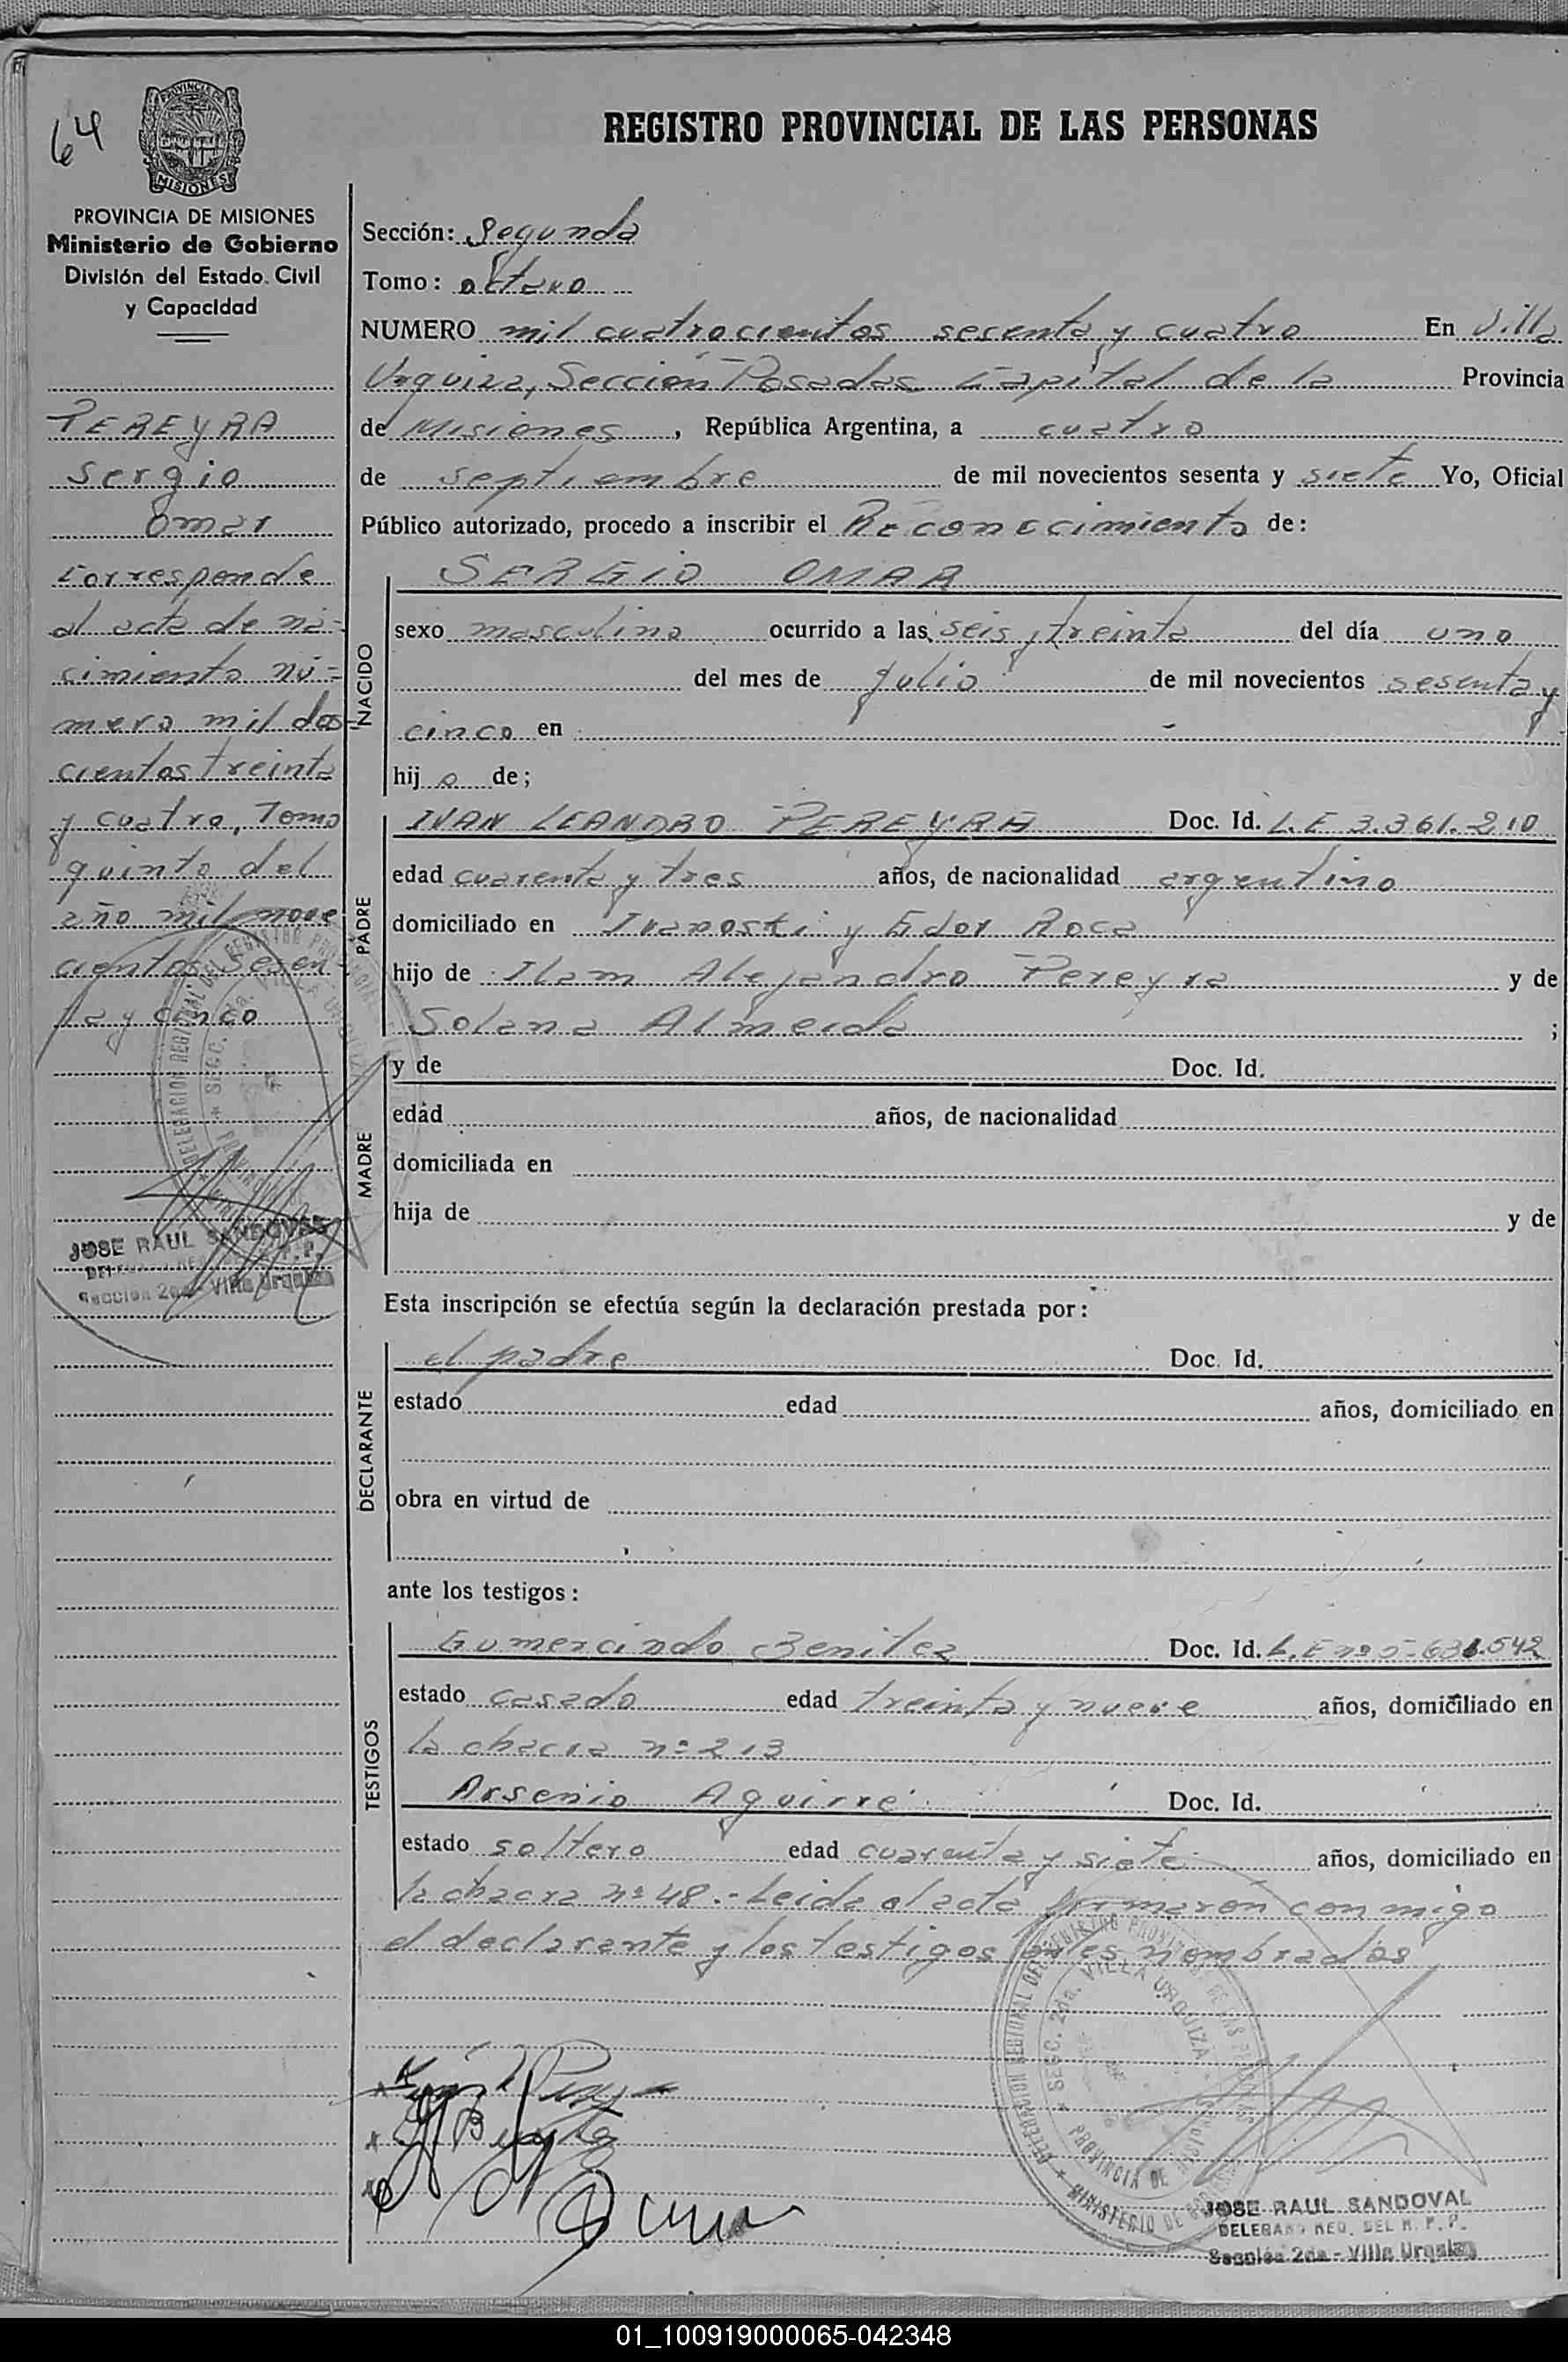 64
PROVINCIA DE MISIONES
Ministerio de Gobierno
División del Estado Civil
y Capacidad
PEREYRA
Sergio
Omar
Corresponde
al acta de na-
cimiento nú=
mero mil dos-
cientos treinta
y cuatro, Tomo
quinto del
año mil nove
cientos sesen-
ta y cinco
JOSE RAUL SANDOVAL
Sección 2da - Villa Urquiza
REGISTRO PROVINCIAL DE LAS PERSONAS
Sección: Segunda
Tomo: octavo
NUMERO mil cuatrocientos sesenta y cuatro En Villa
Urquiza, Sección Posadas Capital de la Provincia
de Misiones, República Argentina, a cuatro
de septiembre de mil novecientos sesenta y siete Yo, Oficial
Público autorizado, procedo a inscribir el Reconocimiento de:
NACIDO
SERGIO OMAR
sexo masculino ocurrido a las seis y treinta del día uno
del mes de julio de mil novecientos sesenta y
cinco en -
hijo de;
PADRE
IVAN LEANDRO PEREYRA Doc. Id. L.E 3.361.210
edad cuarenta y tres años, de nacionalidad argentino
domiciliado en Ivanoski y Edor Roca
hijo de Ilam Alejandro Pereyra y de
Solana Almeida ;
MADRE
y de Doc. Id.
edad años, de nacionalidad
domiciliada en
hija de y de
Esta inscripción se efectúa según la declaración prestada por:
DECLARANTE
el padre Doc. Id.
estado edad años, domiciliado en
obra en virtud de
ante los testigos:
TESTIGOS
Gumercindo Benitez Doc. Id. L.E nº 5.631.542
estado casado edad treinta y nueve años, domiciliado en
la chacra nº 213
Arsenio Aguirre Doc. Id.
estado soltero edad cuarenta y siete años, domiciliado en
la chacra nº 48.- Leida el acta firmaron conmigo
el declarante y los testigos antes nombrados
DELEGACION REGIONAL DEL REGISTRO PROVINCIAL DE LAS PERSONAS
SECC. 2da. VILLA URQUIZA
PROVINCIA DE MISIONES
MINISTERIO DE GOBIERNO
JOSE RAUL SANDOVAL
DELEGADO REG. DEL R. P. P.
Sección 2da - Villa Urquiza
01_100919000065-042348